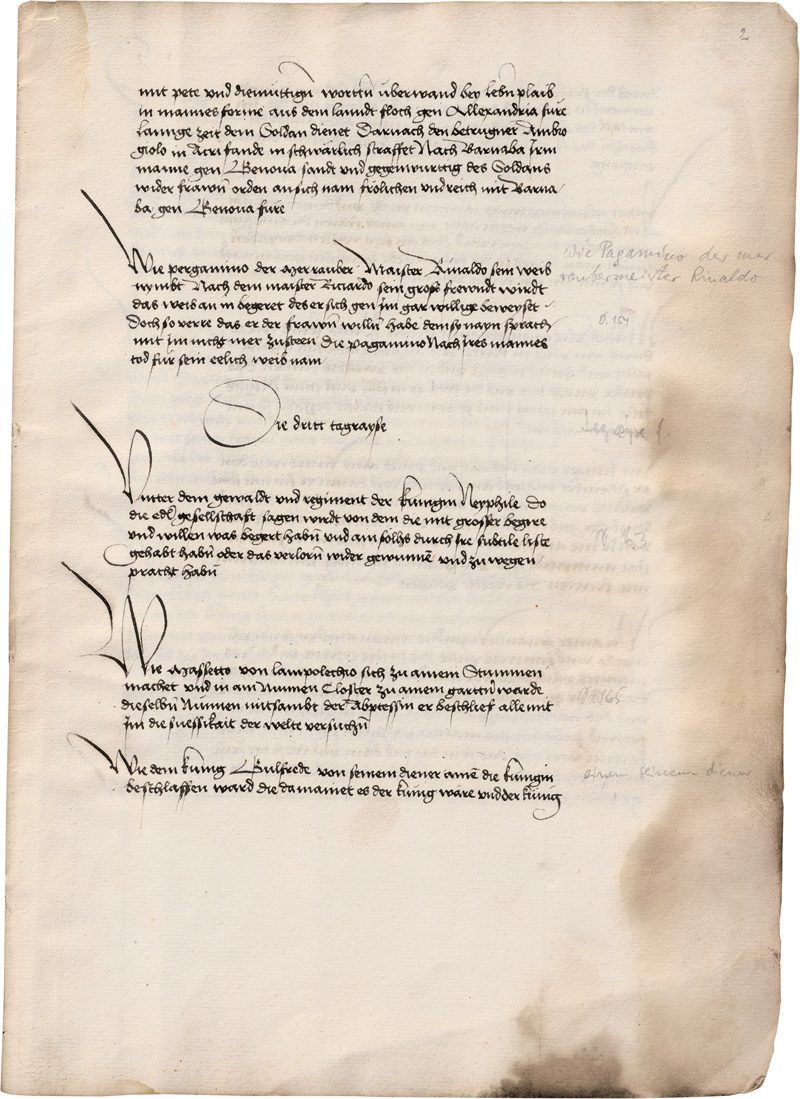 2
mit pete vnd diemüttign̄ worttn̄ überwand bey lebn̄ plaib
in mannes forme aus dem lanndt floch gen Allexandria füre
lannge zeit dem Soldan dienet Darnach den betrugner Ambro
giolo in Acri fande in schwärlich straffet Nach Barnaba Irm
manne gen Genoua sandt vnd gegenwurttig des Soldans
wider frawn̄ orden an sich nam frölichen vnd reich mit Barna
ba gen Genoua füre
Wie pergamino der Merrauber Maister Rinaldo sein weib
nymbt Nach dem maister Riciardo sein groß frewndt wirdt
das weib an in begeret des er sich gen Im gar willige beweyset
Doch so verre das er der frawn̄ willn̄ habe dem sy nayn sprach
mit Im nicht mer zusteen Die pagamino Nach Ires mannes
tod für sein eelich weib nam
wie Pagamino der mer
raubermeister Rinaldo
Die dritt tagrayse
Vnnter dem gewaldt vnd regiment der künigin Neyphile Do
die edl gesellschaft sagen wirdt von dem die mit grosser begire
vnd willen was begert habn̄ vnd am solhs durch Ire subtile liste
gehabt habn̄ oder das verlorn̄ wider gewunnē vnd zu wegen
pracht habn̄
Wie Massetto von lampolechio sich zu ainem Stummen
machet vnd in ain Nunnen Closter zu ainem garttn̄ warde
dieselbn̄ Nunnen mitsambt der Abptessin er beschlief alle mit
Im die suessikait der welte versuchn̄
Wie dem künig Gulfrede von seinem diener ainē die künigin
beschlaffen ward die da mainet es der künig wäre vnd der künig
einem seinem diener